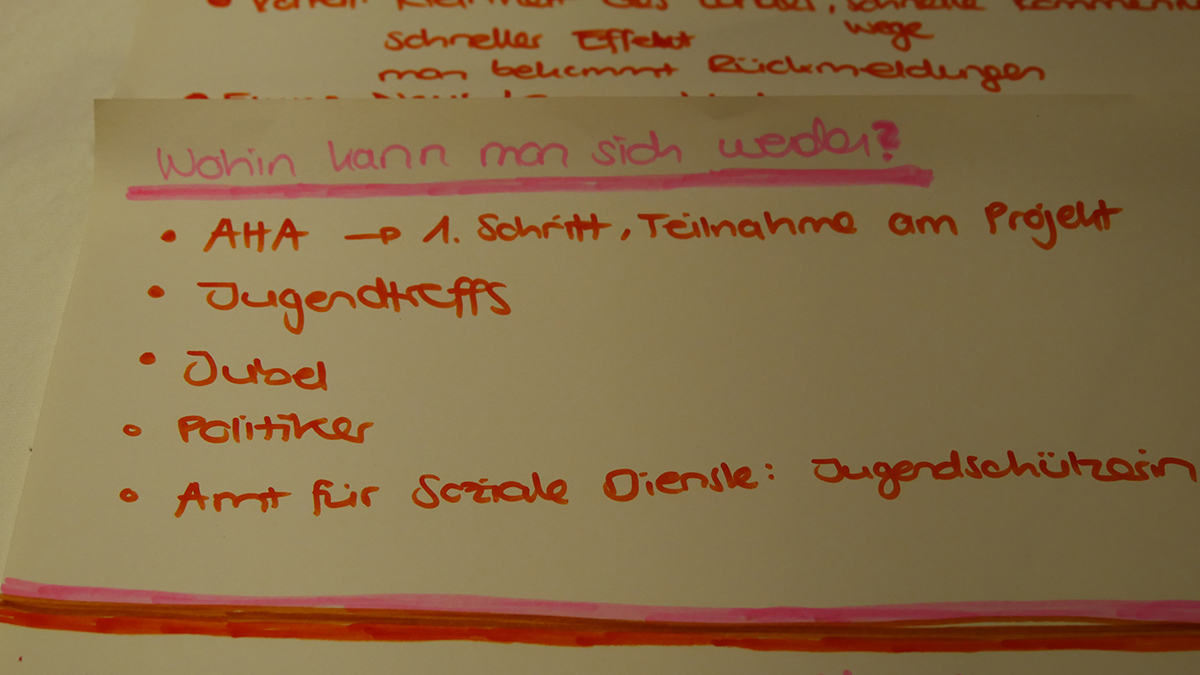 schnelle
schneller Effekt wege
man bekommt Rückmeldungen
Wohin kann man sich wenden?
• AHA → 1. Schritt, Teilnahme am Projekt
• Jugendtreffs
• Jubel
• Politiker
• Amt für Soziale Dienste: Jugendschützerin